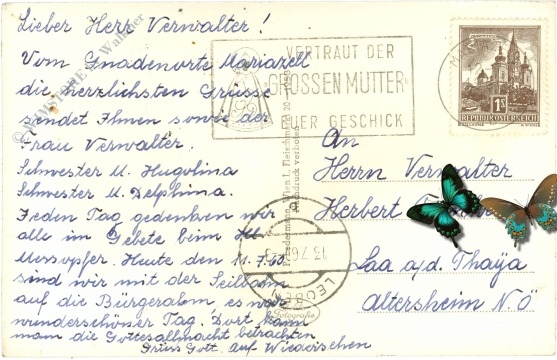 Lieber Herr Verwalter!
Vom Gnadenorte Mariazell
die herzlichsten Grüsse
sendet Ihnen sowie der
Frau Verwalter.
Schwester M. Hugolina
Schwester M. Delphina.
Jeden Tag gedenken wir
alle im Gebete beim Hl.
Messopfer. Heute den 11.7.60.
sind wir mit der Seilbahn
auf die Bürgeralem, es war
wunderschöner Tag. Dort kann
man die Gottesallmacht betrachten
Grüss Gott. Auf Wiedersehen
VERTRAUT DER
GROSSEN MUTTER
EUER GESCHICK
1S
REPUBLIK ÖSTERREICH
An
Herrn Verwalter
Herbert
Laa a/d. Thaya
Altersheim N.Ö
Wien I, Fleischmarkt
Nachdruck verboten